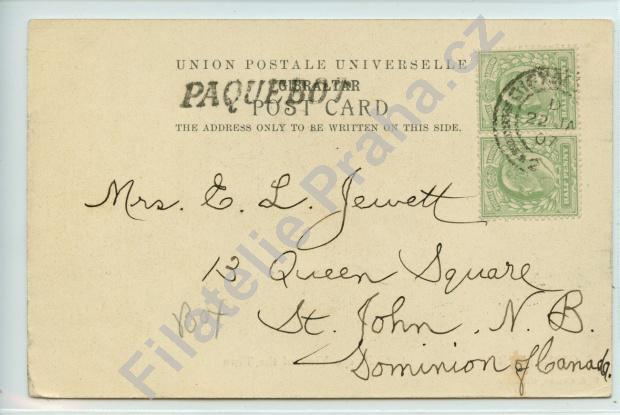 UNION POSTALE UNIVERSELLE
GIBRALTAR
PAQUEBOT
POST CARD
THE ADDRESS ONLY TO BE WRITTEN ON THIS SIDE.
HALF PENNY
Mrs. E. L. Jewett
13 Queen Square
St. John, N. B.
Dominion of Canada.
Filatelie Praha.cz